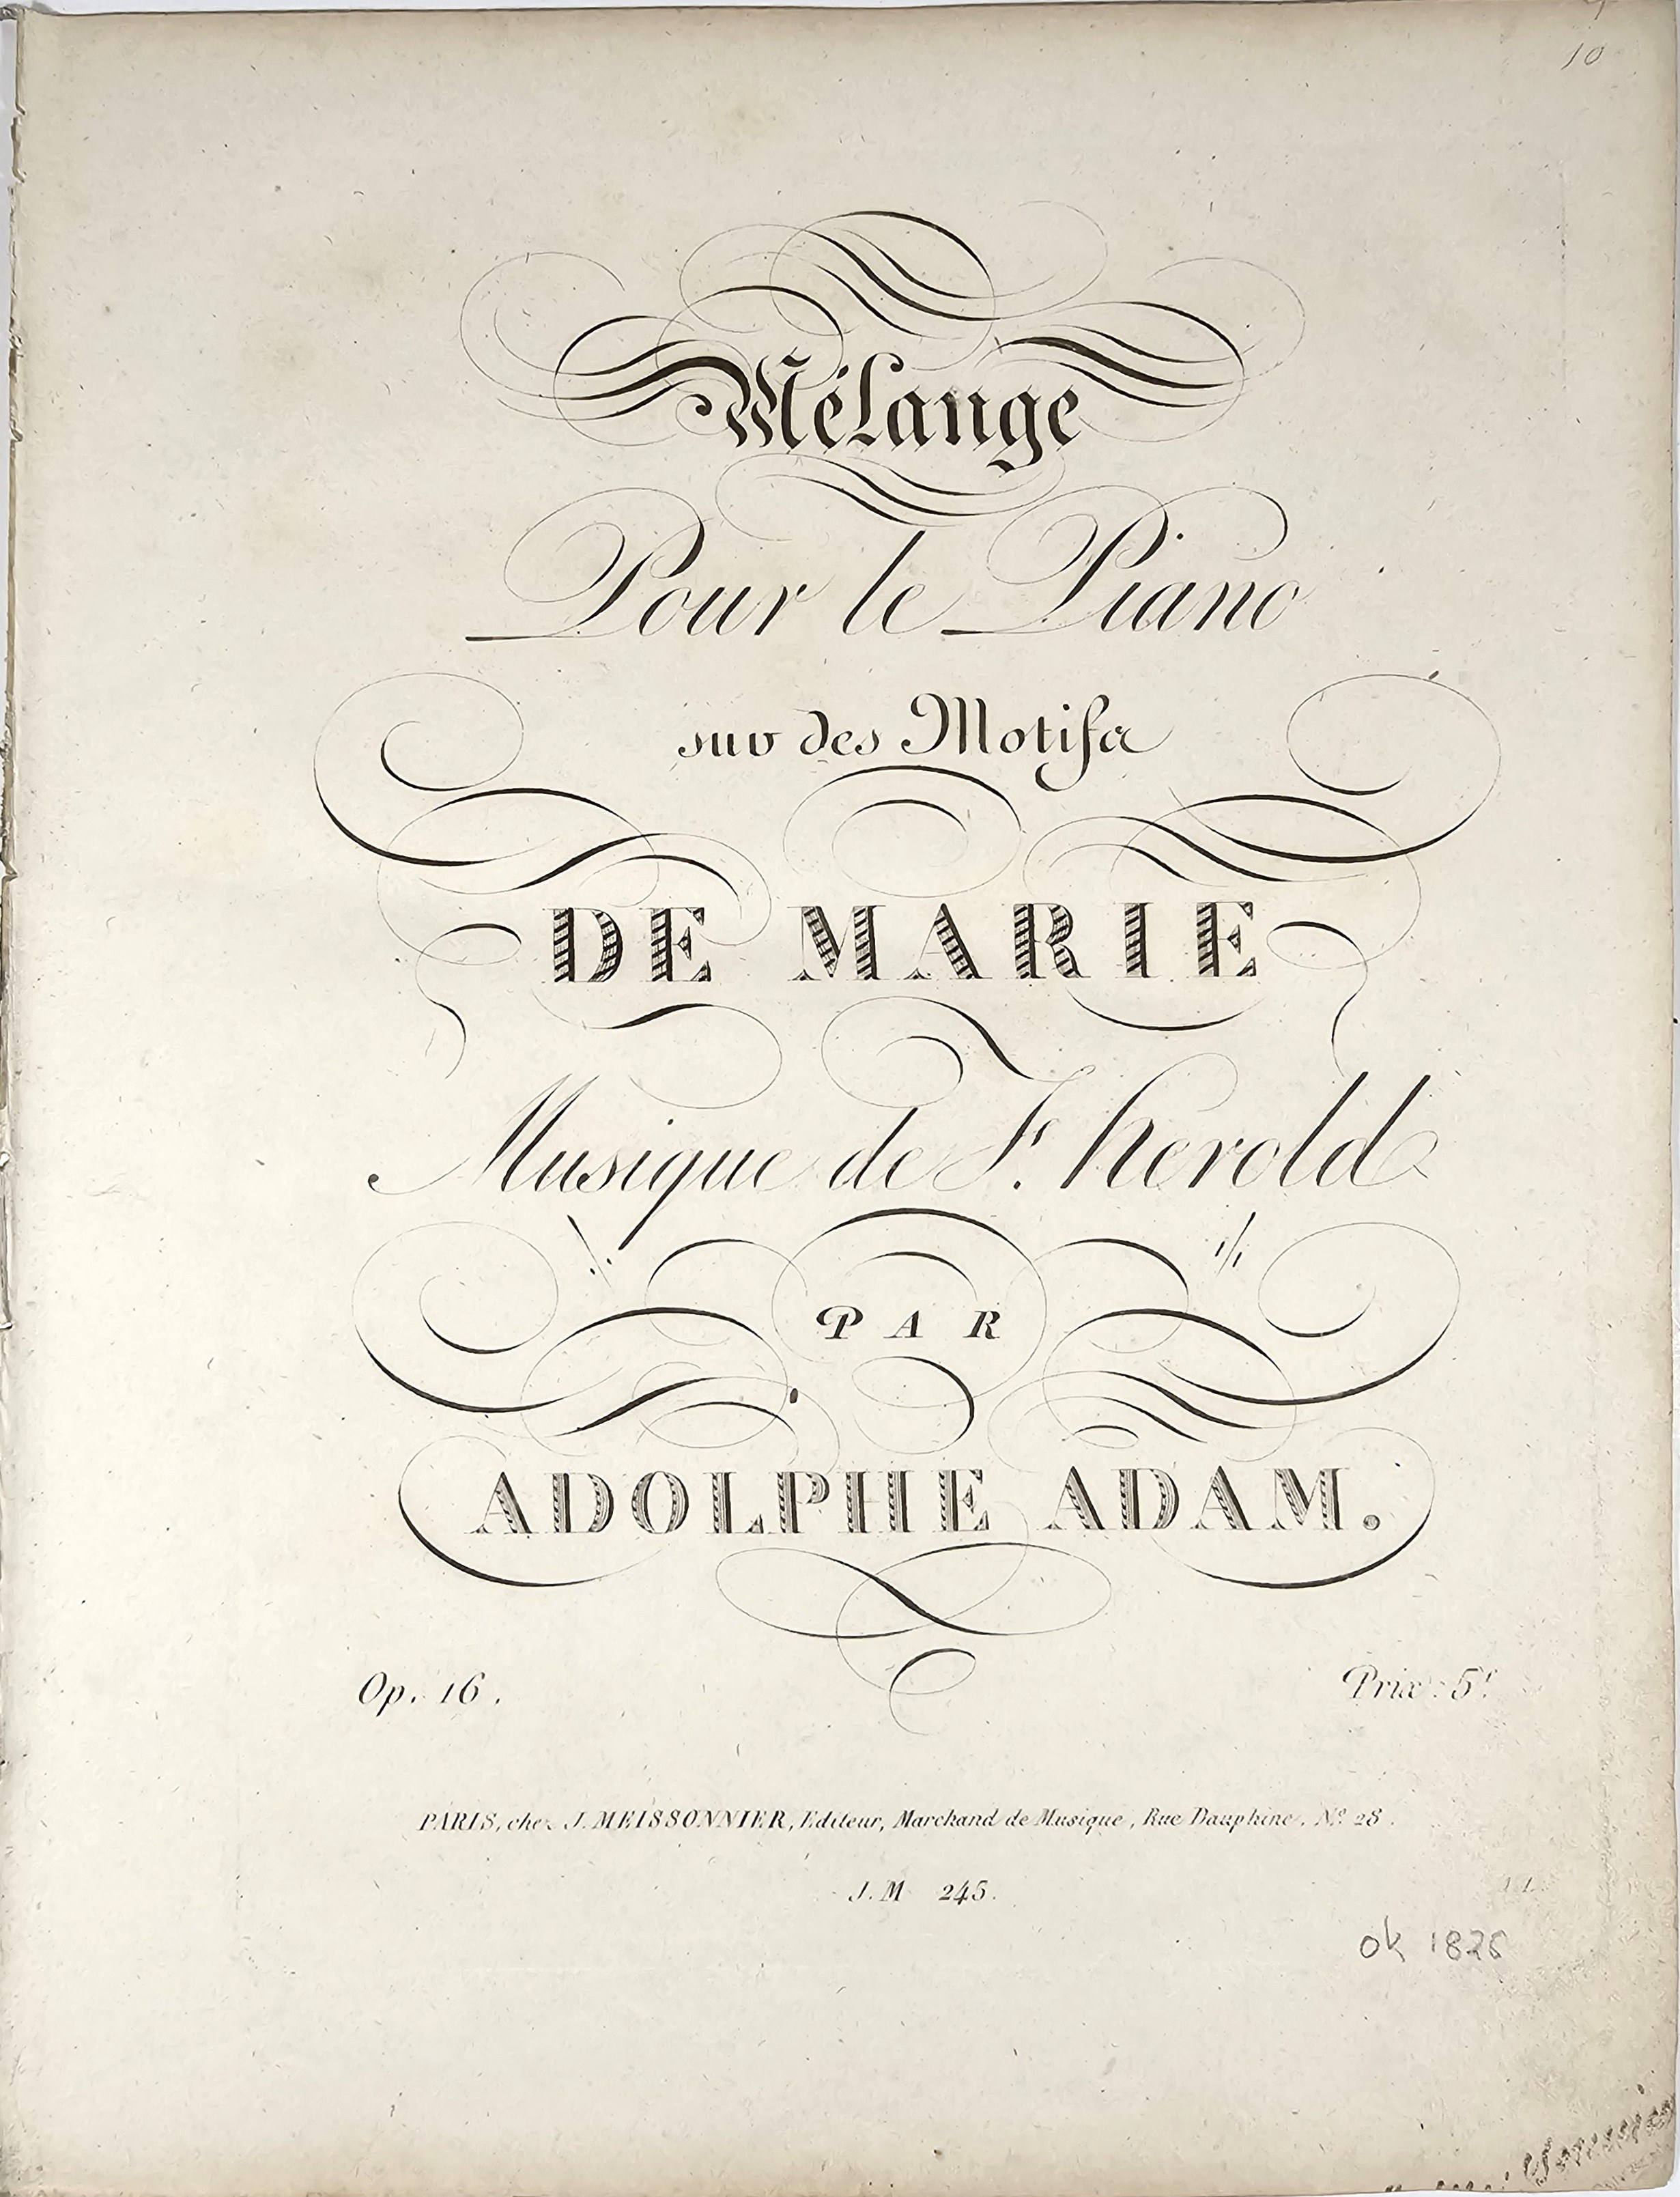 10
Mélange
Pour le Piano
sur des Motifs
DE MARIE
Musique de F. herold
PAR
ADOLPHE ADAM.
Op. 16.
Prix: 5f
PARIS, chez J. MEISSONNIER, Editeur, Marchand de Musique, Rue Dauphine, No. 28.
J.M 245.
ok 1826